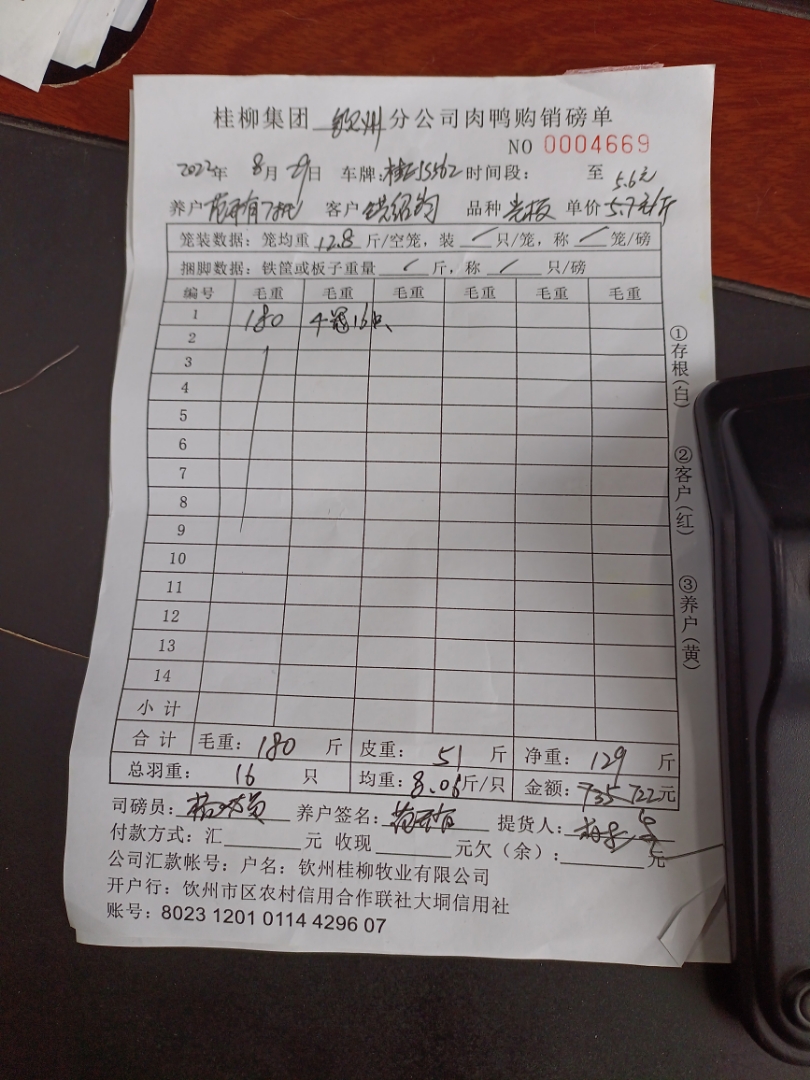 桂柳集团 钦州 分公司肉鸭购销磅单
NO 0004669
2022年 8月29日 车牌: 时间段: 至
5.6元
养户 客户 品种 单价 5.7元/斤
笼装数据: 笼均重 12.8 斤/空笼, 装 / 只/笼, 称 / 笼/磅
捆脚数据: 铁筐或板子重量 / 斤, 称 / 只/磅
编号 毛重 毛重 毛重 毛重 毛重 毛重
1 180 4笼16只
2
3
4
5
6
7
8
9
10
11
12
13
14
小计
合计 毛重: 180 斤 皮重: 51 斤 净重: 129 斤
总羽重: 16 只 均重: 8.06斤/只 金额: 735 722元
司磅员: 养户签名: 提货人:
付款方式: 汇 元 收现 元欠(余): 元
公司汇款帐号: 户名: 钦州桂柳牧业有限公司
开户行: 钦州市区农村信用合作联社大垌信用社
账号: 8023 1201 0114 4296 07
①存根(白)
②客户(红)
③养户(黄)